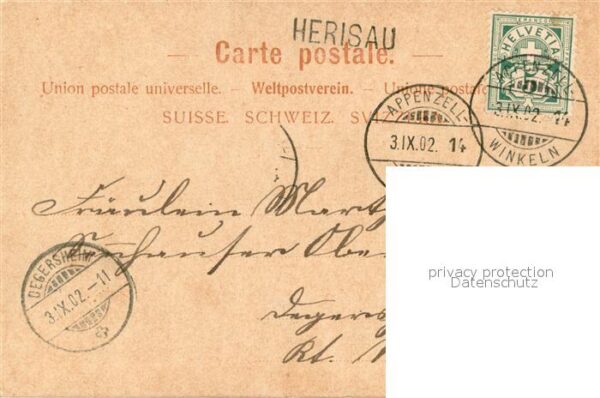 HERISAU
Carte postale.
Union postale universelle. — Weltpostverein. — Unione postale
SUISSE. SCHWEIZ.
HELVETIA
FRANCO
5
APPENZELL-
3.IX.02. 14
APPENZELL-
3.IX.02. 14
WINKELN
Fräulein
Ober
Degers
Kt.
DEGERSHEIM
3.IX.02.-11
privacy protection
Datenschutz